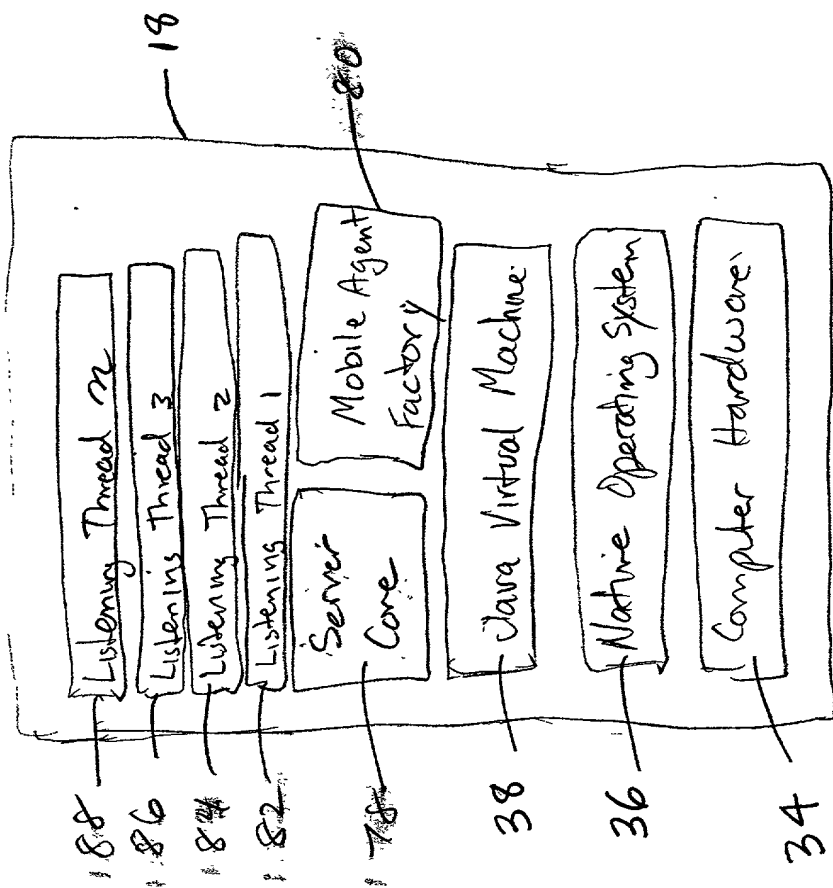 18
188 Listening Thread n
186 Listening Thread 3
184 Listening Thread 2
182 Listening Thread 1
80
178 Server
Core
Mobile Agent
Factory
38 Java Virtual Machine
36 Native Operating System
34 Computer Hardware